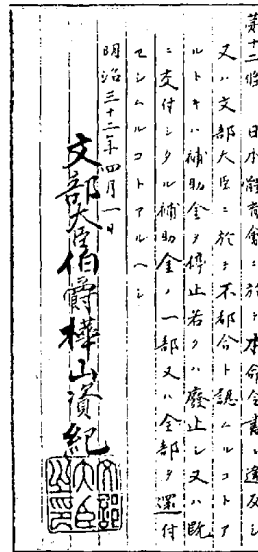 第十二條　日本體育會ニ於テ本命令書ニ違反シ
又ハ文部大臣ニ於テ不都合ト認ムルコトア
ルトキハ補助金ヲ停止若クハ廢止シ又ハ既
ニ交付シタル補助金ノ一部又ハ全部ヲ還付
セシムルコトアルヘシ
明治三十二年四月一日
文部大臣伯爵樺山資紀
文部大臣之印